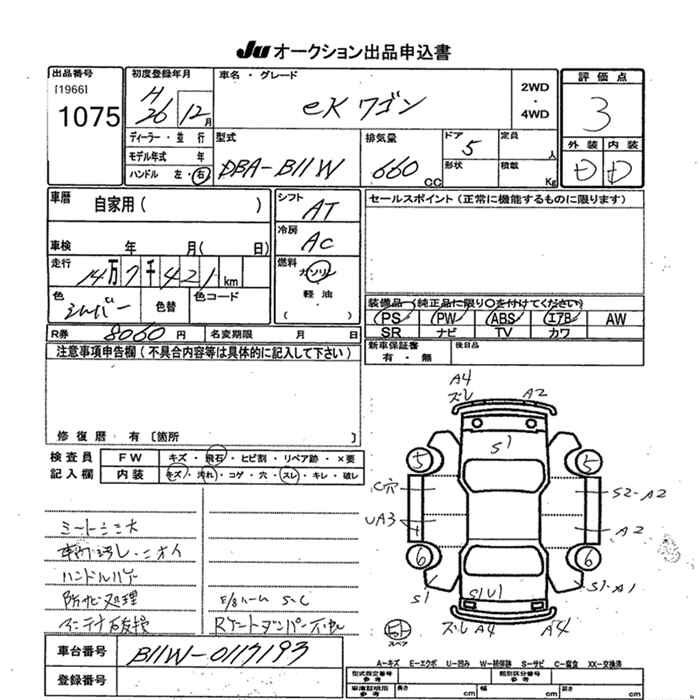 Ju オークション出品申込書
出品番号
[1966]
1075
初度登録年月
H
26年 12月
ディーラー・並行
モデル年式 年
ハンドル 左・右
車名・グレード
eK ワゴン
2WD
・
4WD
型式
DBA-B11W
排気量
660 CC
ドア
5
定員
人
形状
積載
Kg
評価点
3
外装 内装
D D
車暦
自家用( )
車検 年 月( 日)
走行
14万7千421km
色
シルバー
色替
色コード
シフト
AT
冷房
AC
燃料
ガソリン
・
軽油
( )
セールスポイント(正常に機能するものに限ります)
装備品(純正品に限り○を付けてください)
PS PW ABS エアB AW
SR ナビ TV カワ
R券 8060円 名変期限 月 日
新車保証書
有・無
後日品
注意事項申告欄(不具合内容等は具体的に記入して下さい)
修復暦 有 [箇所 ]
検査員
記入欄
FW キズ・飛石・ヒビ割・リペア跡・×要
内装 キズ・汚れ・コゲ・穴・スレ・キレ・破レ
ハンドルハゲ
防サビ処理
F/Bハーム S-C
アンテナ破損
A4
ズレ
A2
S1
5
5
C穴
S2-A2
UA3
A2
6
6
S1
S1U1
S1-A1
ズレ A4
A4
スペア
車台番号 B11W-0117193
登録番号
A-キズ E-エクボ U-凹み W-補修跡 S-サビ C-腐食 XX-交換済
型式指定番号
参考
類別区分番号
参考
車庫証明用
参考
長さ cm 幅 cm 高さ cm